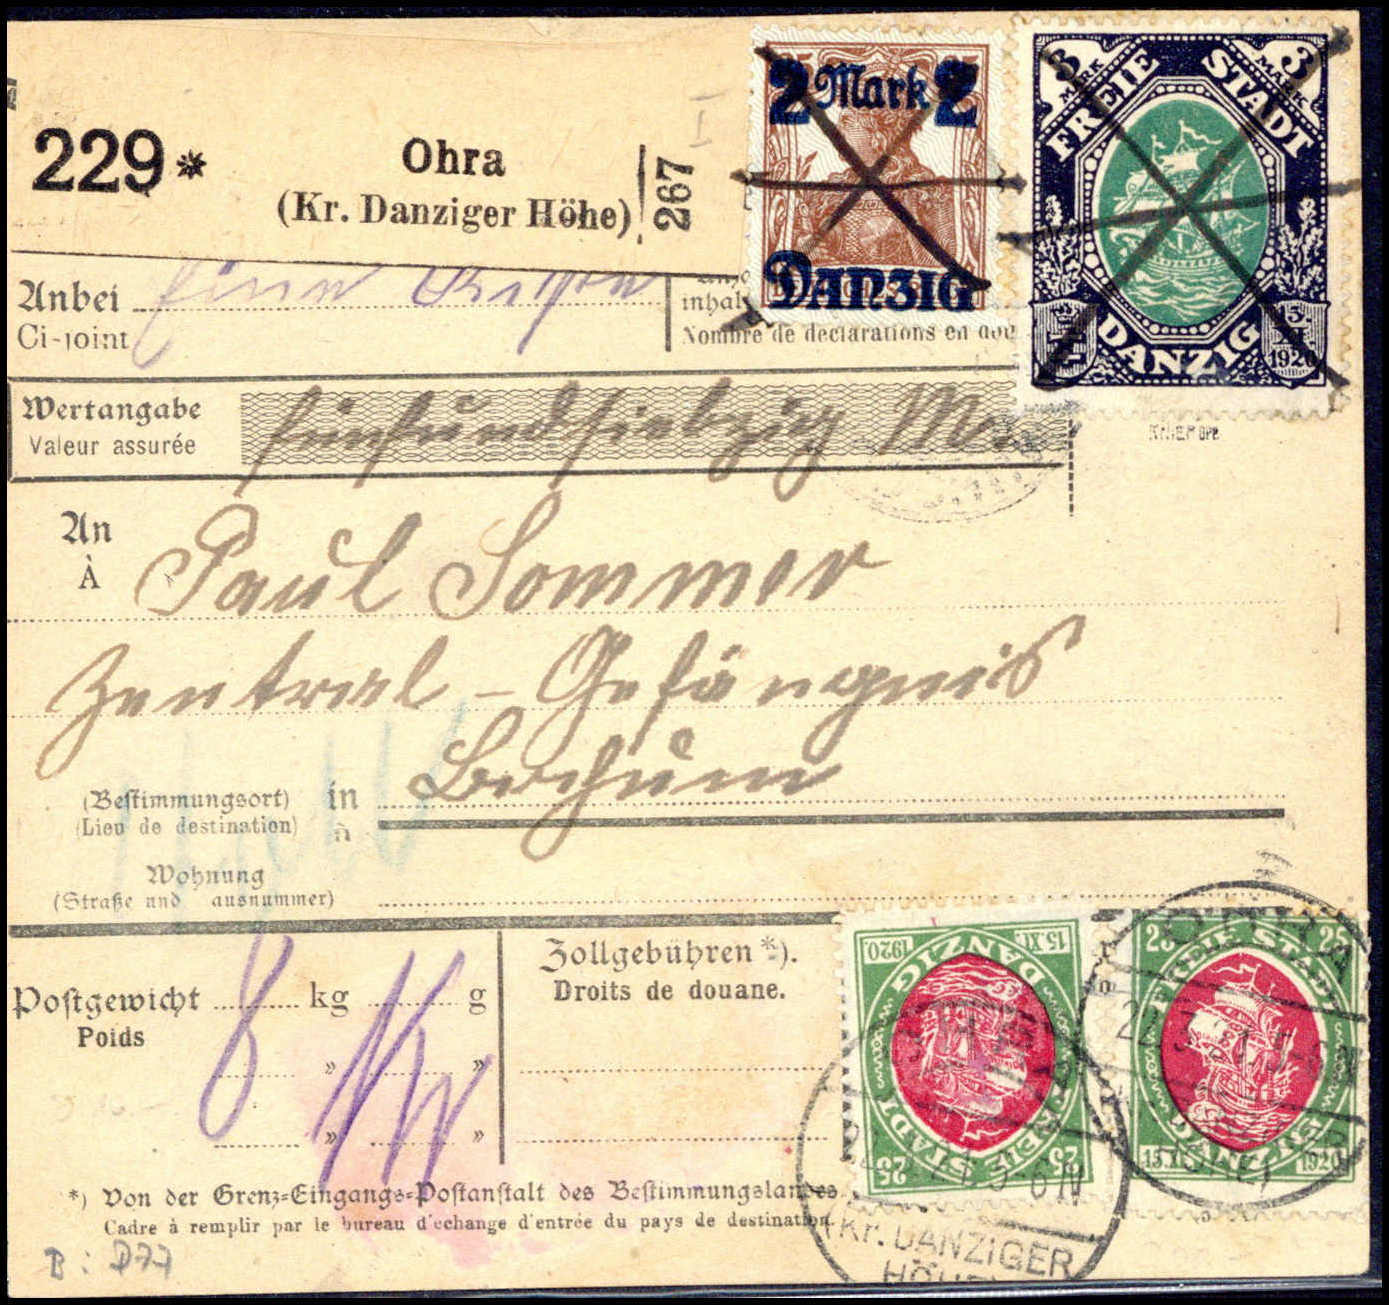 229*
Ohra
(Kr. Danziger Höhe)
267
I
2 Mark 2
DANZIG
3 MARK
3 MARK
FREIE STADT
DANZIG
15.
XI.
1920
Anbei
Ci-joint
inhal
Nombre de déclarations en dou
Wertangabe
Valeur assurée
fünfundsiebzig M
An
À
Paul Sommer
Zentral-Gefängnis
(Bestimmungsort)
(Lieu de destination)
in
à
Bochum
Wohnung
(Straße und ausnummer)
Postgewicht
Poids
8
kg
g
"
"
"
"
Zollgebühren *).
Droits de douane.
25
25
FREIE STADT
DANZIG
15.XI.
1920
25
25
FREIE STADT
DANZIG
15.XI.
1920
OHRA
22.3.21.5-6N
22.3.21.5-6N
(Kr. DANZIGER
HÖHE)
*) Von der Grenz-Eingangs-Postanstalt des Bestimmungslandes
Cadre à remplir par le bureau d'échange d'entrée du pays de destination.
B: D77